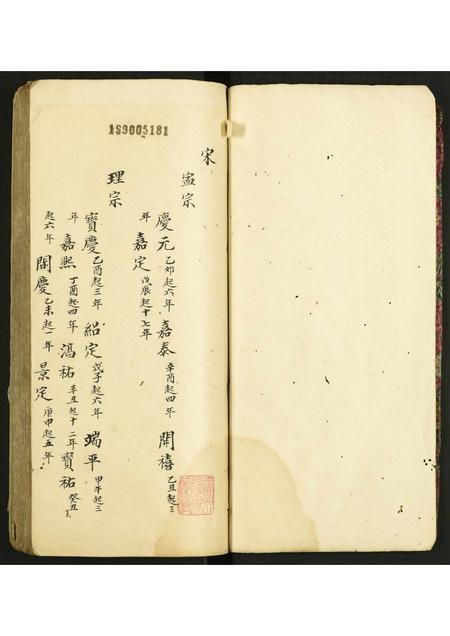 199005181
宋
寍宗
慶元 乙夘起六年 嘉泰 辛酉起四年 開禧 乙丑起三
年 嘉定 戊辰起十七年
理宗
寳慶 乙酉起三年 紹定 戊子起六年 端平 甲午起三
年 嘉熙 丁酉起四年 淳祐 辛丑起十二年 寳祐 癸丑
起六年 開慶 乙未起一年 景定 庚申起五年